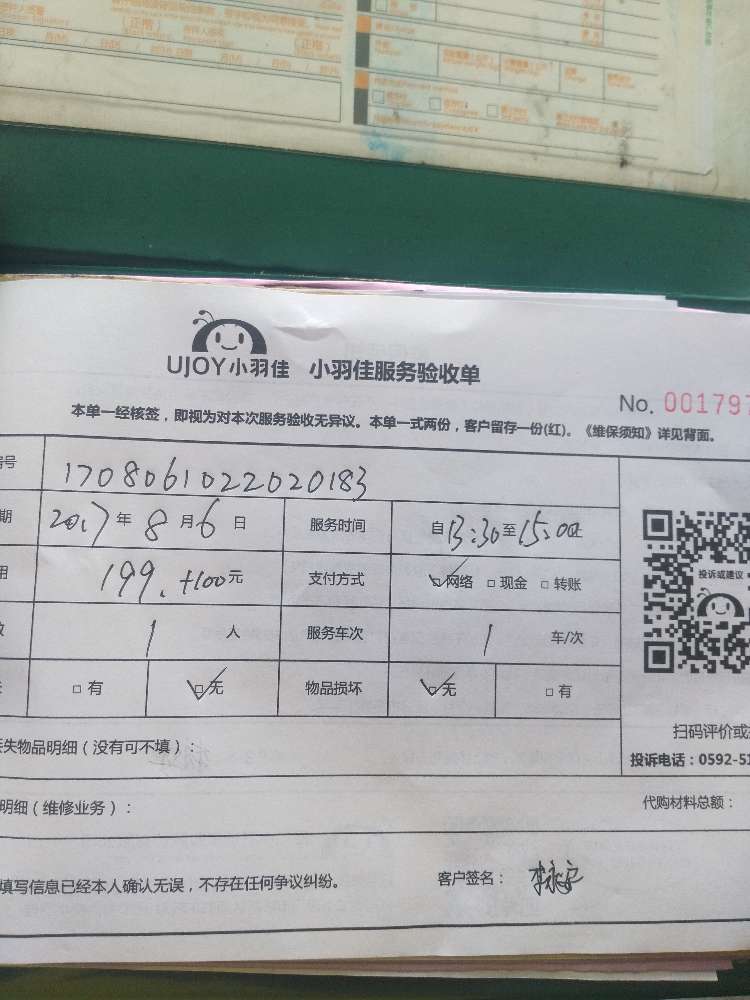 (正楷)
(正楷)
UJOY小羽佳 小羽佳服务验收单
No. 001797
本单一经核签，即视为对本次服务验收无异议。本单一式两份，客户留存一份(红)。《维保须知》详见背面。
号 1708061022020183
期 2017年8月6日 服务时间 自13:30至15:00止
用 199.+100元 支付方式 网络 现金 转账
投诉或建议
数 1人 服务车次 1 车/次
有 无 物品损坏 无 有
失物品明细（没有可不填）：
扫码评价或
投诉电话：0592-51
明细（维修业务）：
代购材料总额：
填写信息已经本人确认无误，不存在任何争议纠纷。 客户签名：